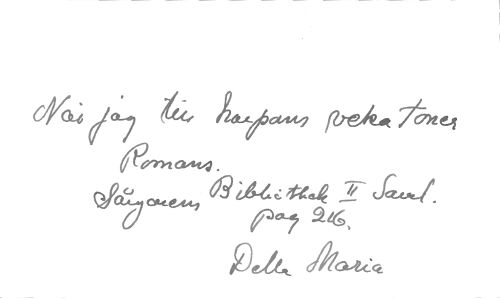 När jag till harpans veka toner
Romans.
Sångarens Bibliothek II Saml.
pag 216.
Della Maria